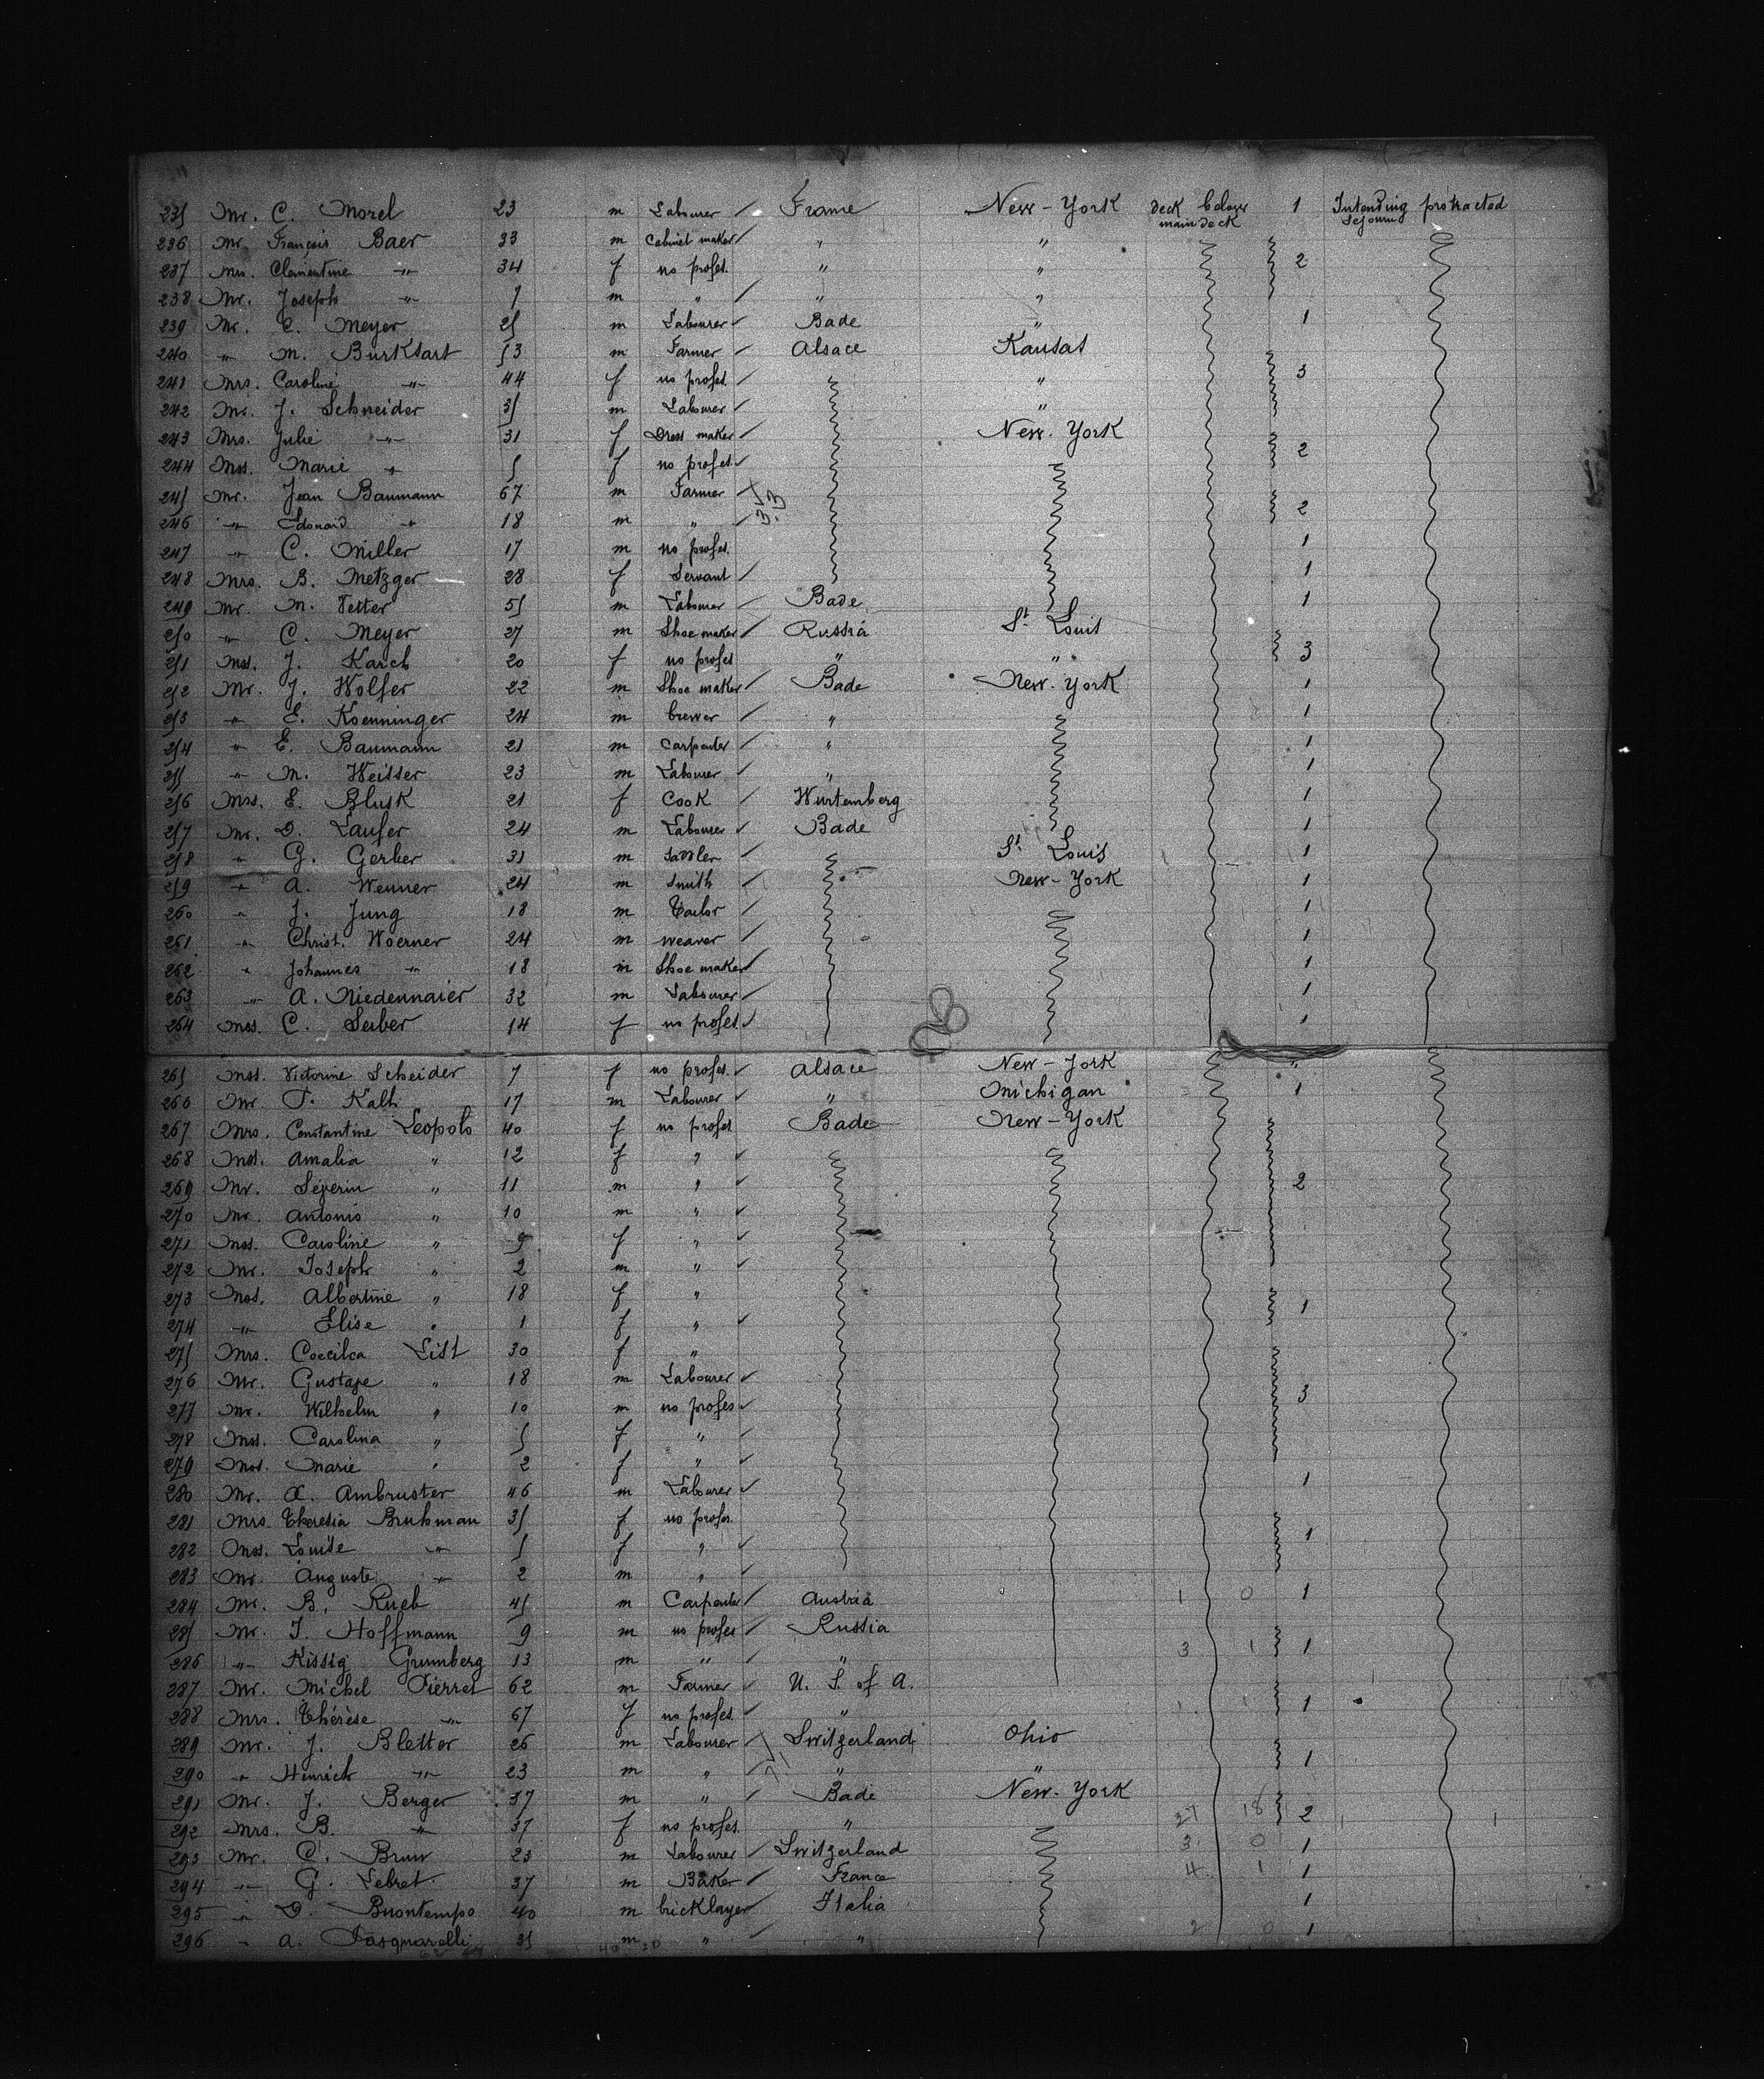 235 Mr. C. Morel 23 m Labourer France New-York deck below main deck 1 Intending protracted sejourn
236 Mr. François Baer 33 m Cabinet maker " "
237 Mrs. Clementine -"- 34 f no profes. " " 2
238 Mr. Joseph -"- 7 m " " "
239 Mr. C. Meyer 25 m Labourer Bade " 1
240 -"- M. Burksart 53 m Farmer Alsace Kansas
241 Mrs. Caroline -"- 44 f no profes. " 3
242 Mr. J. Schneider 35 m Labourer "
243 Mrs. Julie -"- 31 f Dress maker New-York
244 Mss. Marie -"- 5 f no profes. 2
245 Mr. Jean Baumann 67 m Farmer
246 -"- Edouard -"- 18 m " 2
247 -"- C. Miller 17 m no profes. 1
248 Mrs. B. Metzger 28 f Servant 1
249 Mr. M. Vetter 55 m Labourer Bade 1
250 -"- C. Meyer 27 m Shoe maker Russia St. Louis
251 Mss. J. Karch 20 f no profes " " 3
252 Mr. J. Wolfer 22 m Shoe maker Bade New-York 1
253 -"- E. Koenninger 24 m brewer " 1
254 -"- E. Baumann 21 m carpenter " 1
255 -"- M. Weisser 23 m Labourer " 1
256 Mrs. E. Blusk 21 f Cook Wurtemberg 1
257 Mr. D. Laufer 24 m Labourer Bade 1
258 -"- G. Gerber 31 m Saddler St. Louis 1
259 -"- A. Wenner 24 m Smith New-York 1
260 -"- J. Jung 18 m Tailor 1
261 -"- Christ. Woerner 24 m weaver 1
262 -"- Johannes -"- 18 m Shoe maker 1
263 -"- A. Niedermaier 32 m Labourer 1
264 Mss. C. Seiber 14 f no profes. 1
265 Mss. Victorine Scheider 7 f no profes. Alsace New-York "
266 Mr P. Kalb 17 m Labourer " Michigan 1
267 Mrs. Constantine Leopold 40 f no profes Bade New-York
268 Mss. Amalia " 12 f "
269 Mr. Séverin " 11 m " 2
270 Mr. Antonio " 10 m "
271 Mss. Caroline " 9 f "
272 Mr. Joseph " 2 m "
273 Mss. Albertine " 18 f " 1
274 -"- Elise " 1 f "
275 Mrs. Coecilca List 30 f "
276 Mr. Gustave " 18 m Labourer
277 Mr. Wilhelm " 10 m no profes 3
278 Mss. Carolina " 5 f "
279 Mss. Marie " 2 f "
280 Mr. X. Ambruster 46 m Labourer 1
281 Mrs. Theresia Bruhman 35 f no profes.
282 Mss. Louise -"- 5 f " 1
283 Mr. Auguste -"- 2 m "
284 Mr. B. Rueb 45 m Carpenter Austria 1 0 1
285 Mr. J. Hoffmann 9 m no profes Russia
286 -"- Kissig Grumberg 13 m " " 3 1 1
287 Mr. Michel Pierret 62 m Farmer U. S. of A.
288 Mrs. Thérèse -"- 67 f no profes. " 1
289 Mr. J. Bletter 26 m Labourer Switzerland Ohio
290 -"- Henrich -"- 23 m " " " 1
291 Mr. J. Berger 37 m " Bade New-York
292 Mrs. B. -"- 37 f no profes. " 37 18 2
293 Mr. C. Brun 23 m Labourer Switzerland 3 0 1
294 -"- G. Lebret 37 m Baker France 4 1 1
295 -"- D. Buontempo 40 m bricklayer Italia 1
296 -"- A. Pasquarelli 35 m " " 2 0 1